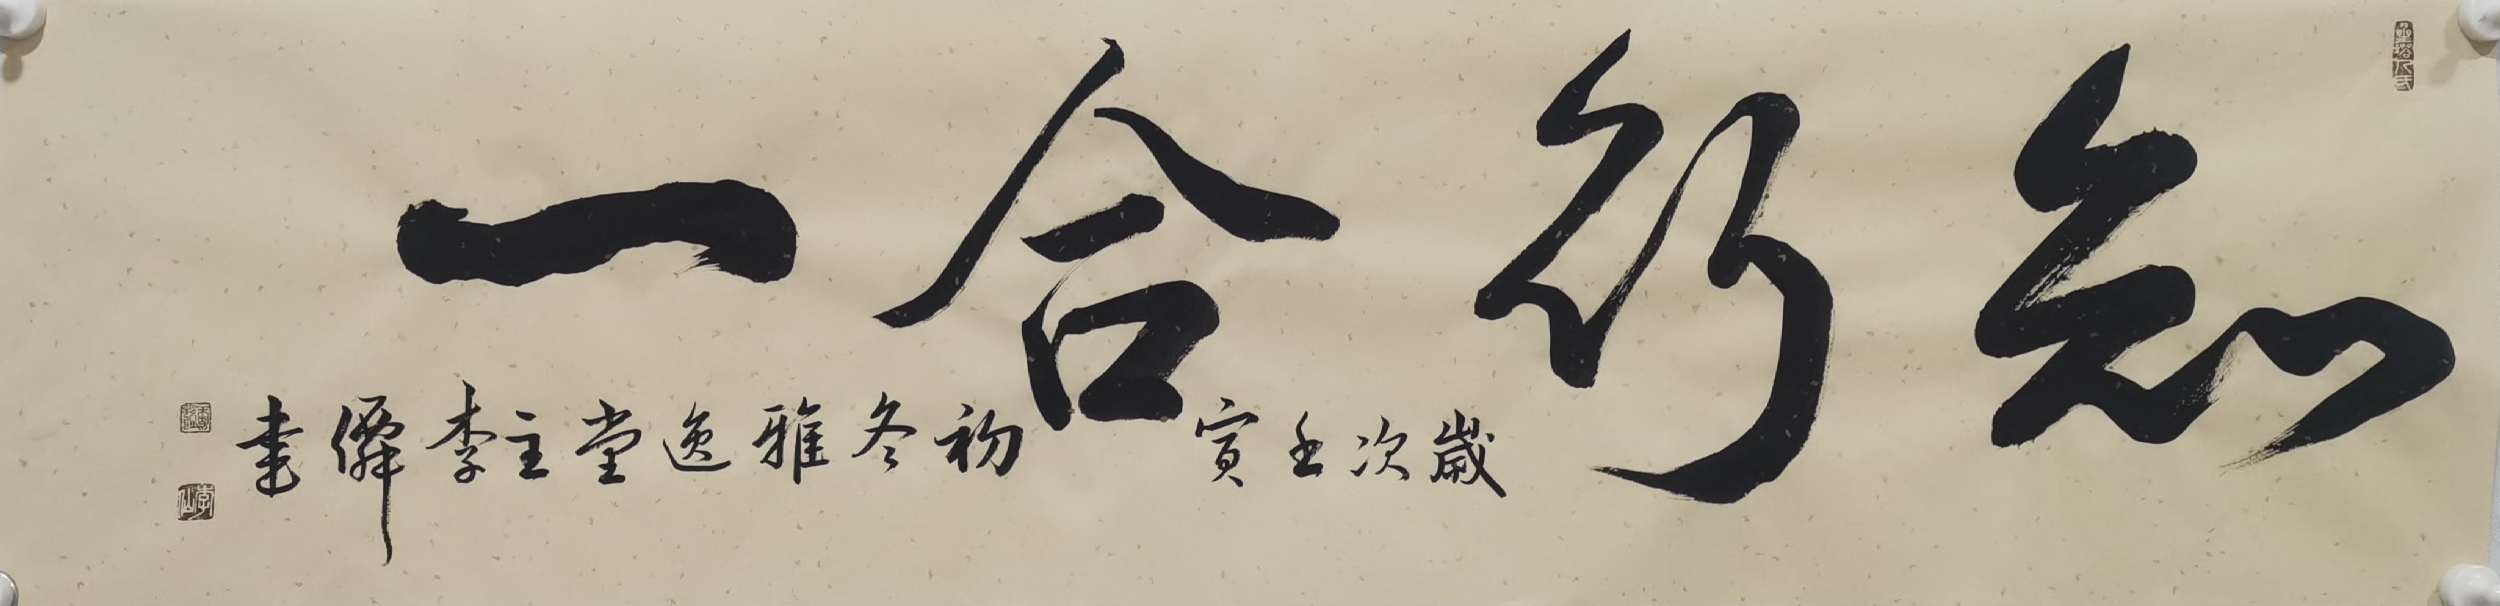 知行合一
歲次壬寅初冬雅逸堂主李僊書